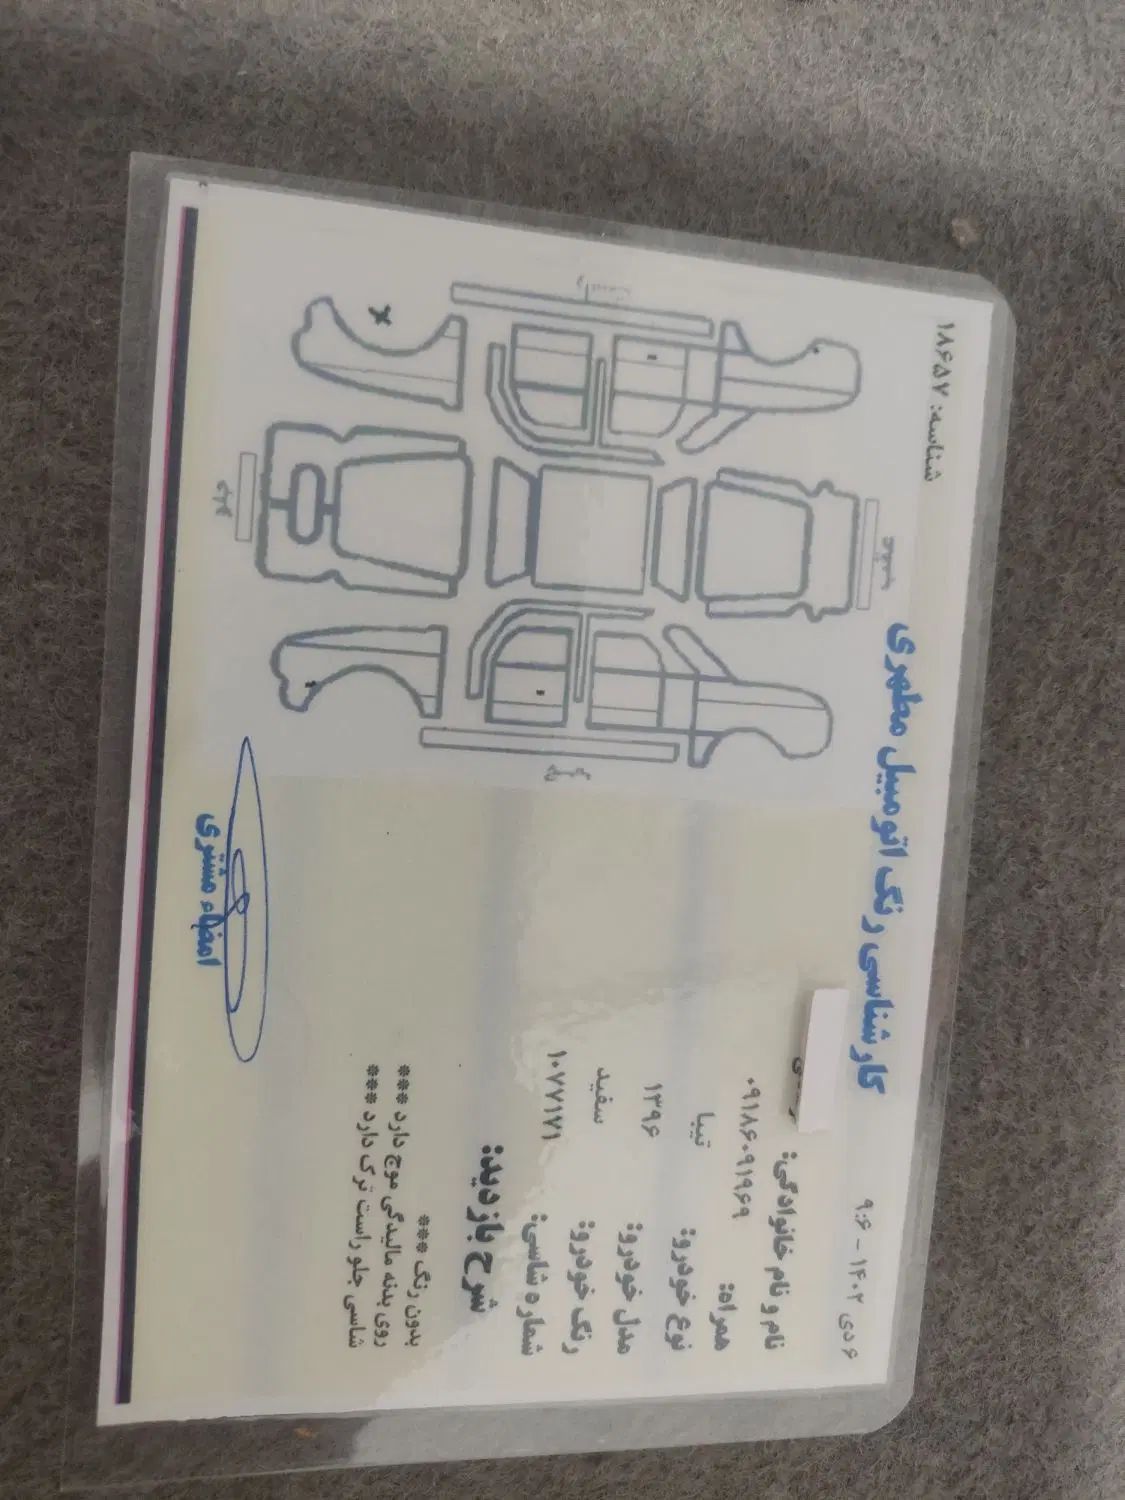 شناسه: ۱۸۶۵۷
کارشناسی رنگ اتومبیل مطهری
۶ دی ۱۴۰۲ - ۹:۶
نام و نام خانوادگی:
همراه: ۰۹۱۸۶۰۹۱۹۶۹
نوع خودرو: تیبا
مدل خودرو: ۱۳۹۶
رنگ خودرو: سفید
شماره شاسی: ۱۰۷۷۱۷۱
شرح بازدید:
بدون رنگ ***
روی بدنه مالیدگی موج دارد ***
شاسی جلو راست ترک دارد ***
امضاء مشتری